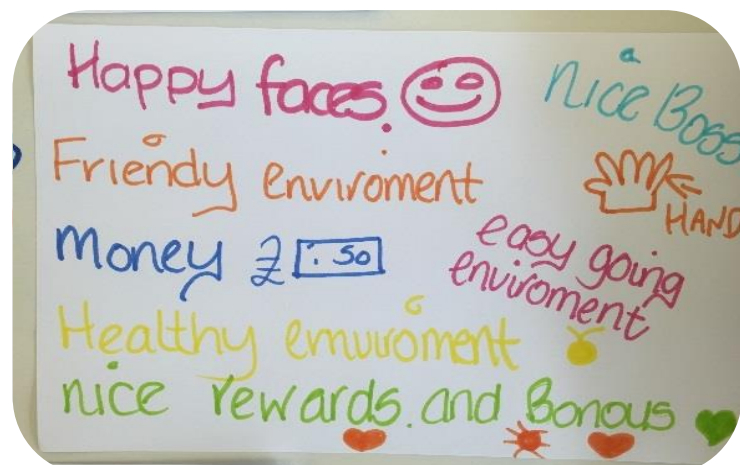 Happy faces.
nice Boss
Friendy enviroment
HAND
Money £ 50
easy going
enviroment
Healthy emuuroment
nice rewards. and Bonous